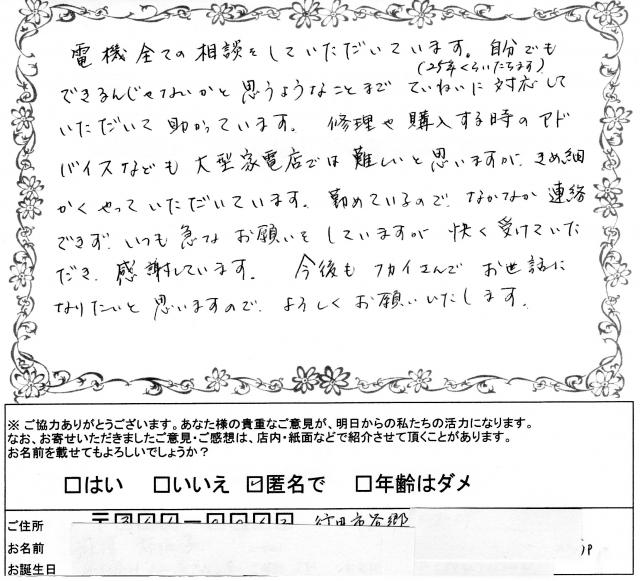 電機全ての相談をしていただいています。自分でも
(25年くらいたちます)
できるんじゃないかと思うようなことまでていねいに対応して
いただいて助かっています。修理や購入する時のアド
バイスなども大型家電店では難しいと思いますが、きめ細
かくやっていただいています。勤めているので、なかなか連絡
できず、いつも急なお願いをしていますが快く受けていた
だき、感謝しています。今後もフカイさんでお世話に
なりたいと思いますので、よろしくお願いいたします。
※ご協力ありがとうございます。あなた様の貴重なご意見が、明日からの私たちの活力になります。
なお、お寄せいただきましたご意見・ご感想は、店内・紙面などで紹介させて頂くことがあります。
お名前を載せてもよろしいでしょうか？
□はい □いいえ ☑匿名で □年齢はダメ
ご住所 〒 行田市谷郷
お名前
お誕生日